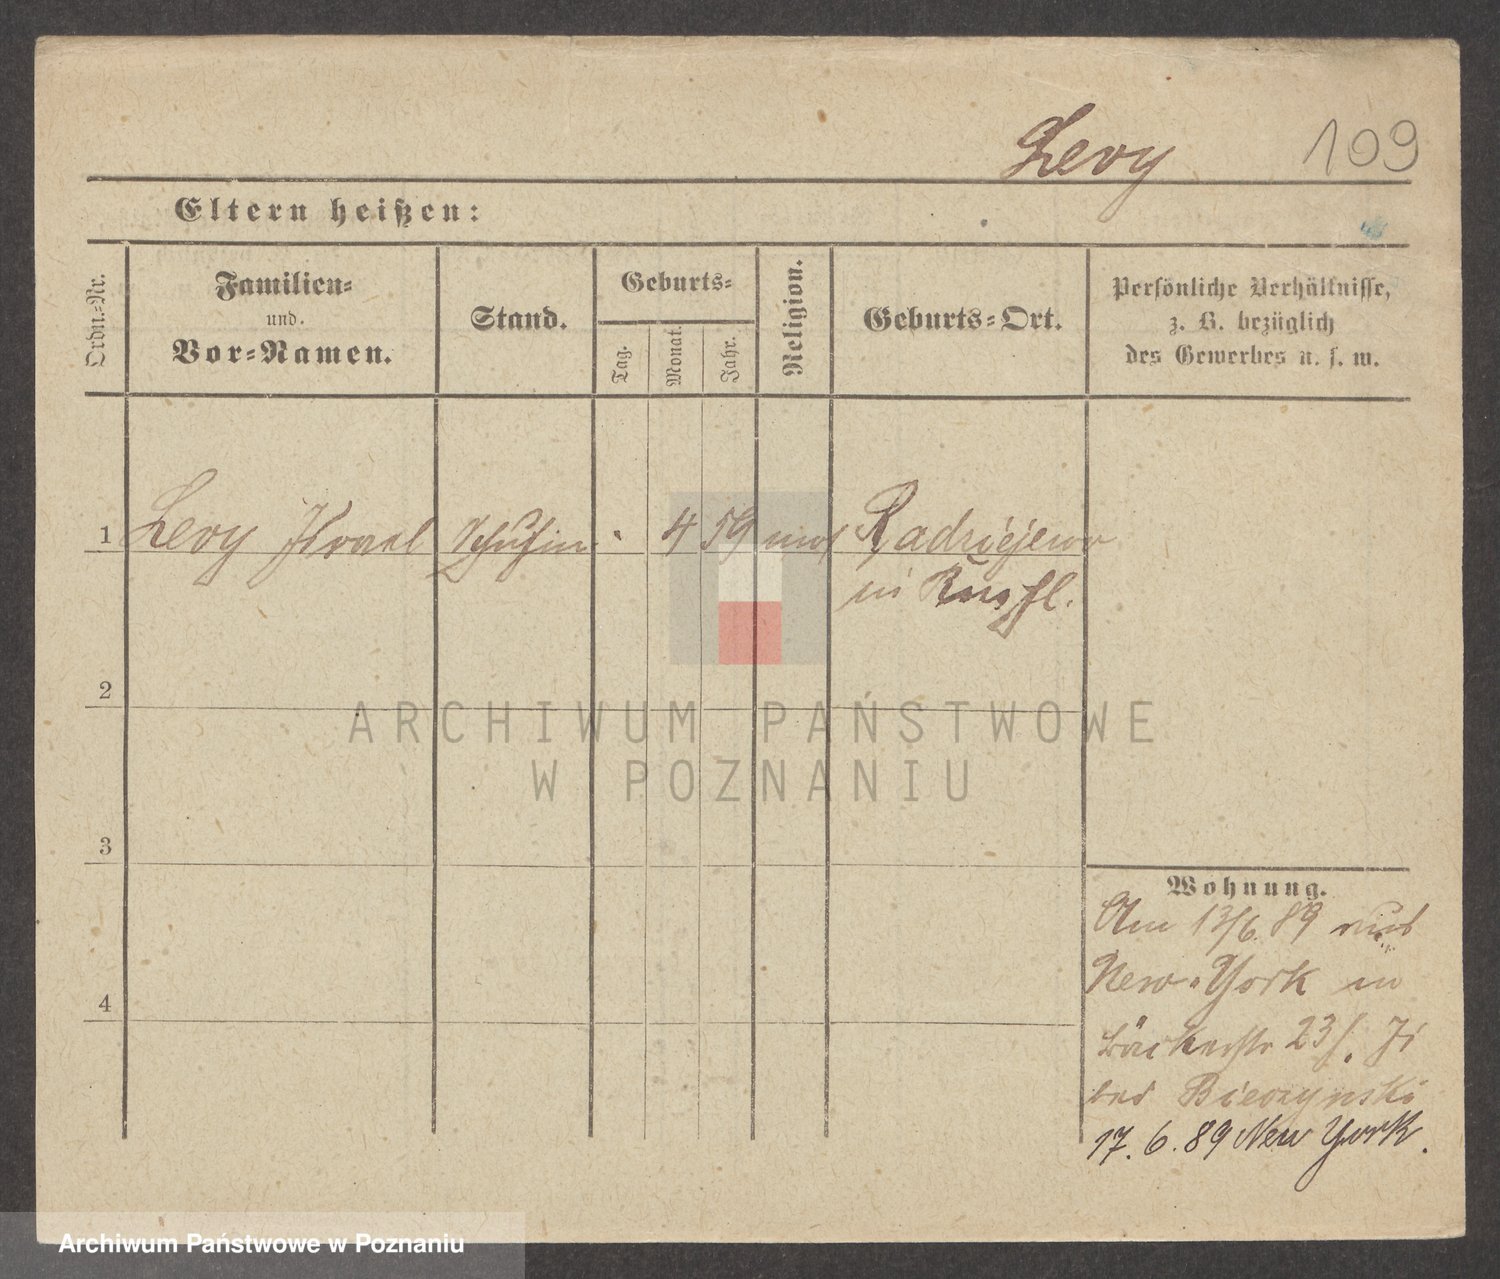 Levy 109
Eltern heißen:
Ordn.-Nr.
Familien-
und.
Vor-Namen.
Stand.
Geburts-
Tag.
Monat.
Jahr.
Religion.
Geburts-Ort.
Persönliche Verhältnisse,
z. B. bezüglich
des Gewerbes u. s. w.
1 Levy Israel 4 59 mos Radziejewo
in Russl.
2
ARCHIWUM PAŃSTWOWE
W POZNANIU
3
Wohnung.
Am 13/6. 89 aus
New-York in
Bäckerstr 23
bei Bieczynski
4
17. 6. 89 New York.
Archiwum Państwowe w Poznaniu